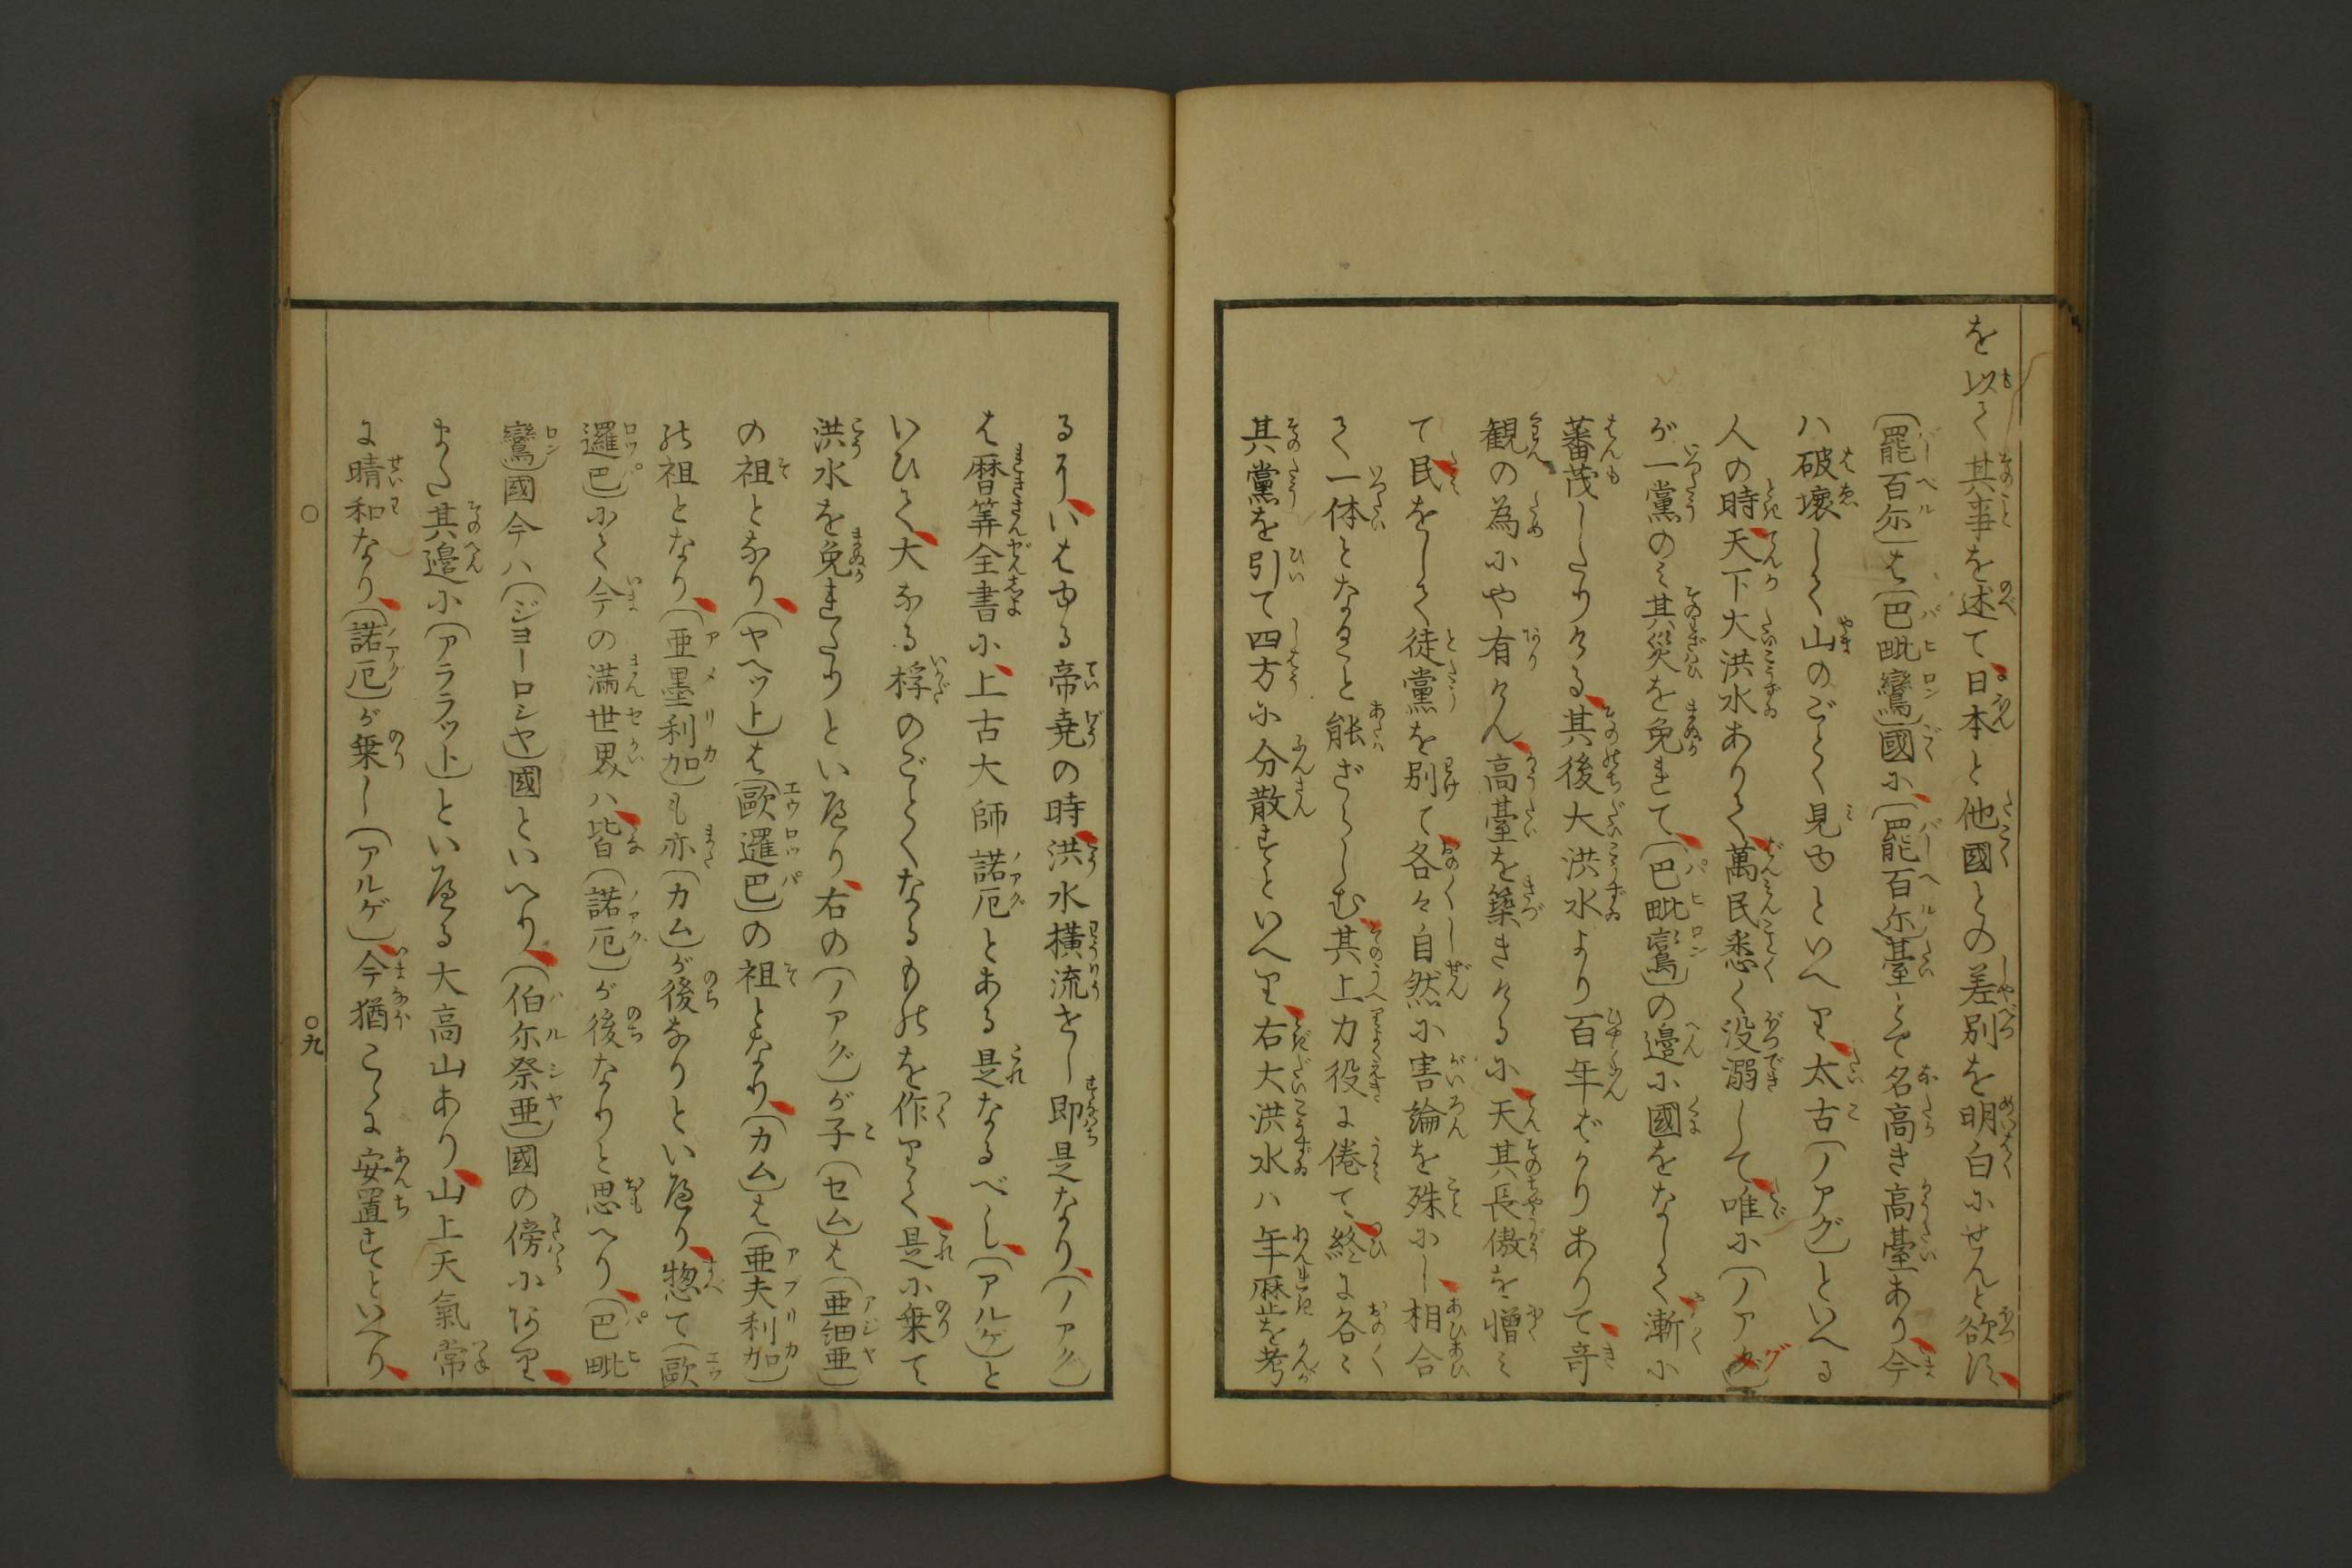 を以て其事を述て日本と他國との差別を明白にせんと欲す
(罷百尓)は(巴毗鸞)國に(罷百尓)臺とて名高き高臺あり今
ハ破壞して山のごとく見ゆといへり太古(ノアグ)といへる
人の時天下大洪水ありて萬民悉く没溺して唯に(ノアグ)
が一黨のミ其災を免ま​れて(巴毗鸞)の邉に國をなして漸に
蕃茂したりける其後大洪水より百年ばかりありて竒
観の為にや有けん高臺を築きけるに天其長傲を憎ミ
て民をして徒黨を別て各々自然に害論を殊にし相合
て一体となること能ざらしむ其上力役に倦て終に各ミ
其黨を引て四方に分散すといへり右大洪水ハ年歴を考
るにいはゆる帝堯の時洪水横流せし即是なり(ノアグ)
は暦筭全書に上古大師諾厄とある是なるべし(アルゲ)と
いひて大なる桴のごとくなるものを作りて是に乗て
洪水を免れたりといへり右の(ノアグ)が子(セム)は(亜細亜)
の祖となり(ヤヘット)は(歐邏巴)の祖となり(カム)は(亜夫利加)
の祖となり(亜墨利加)も亦(カム)が後なりといへり惣て(歐
邏巴)にて今の満世界ハ皆(諾厄)が後なりと思へり(巴毗
鸞)國今ハ(ジヨーロシヤ)國といへり(伯尓祭亜)國の傍にあり
また其邉に(アララット)といへる大高山あり山上天氣常
に晴和なり(諾厄)が乗し(アルゲ)今猶こゝに安置すといへり
○
○九